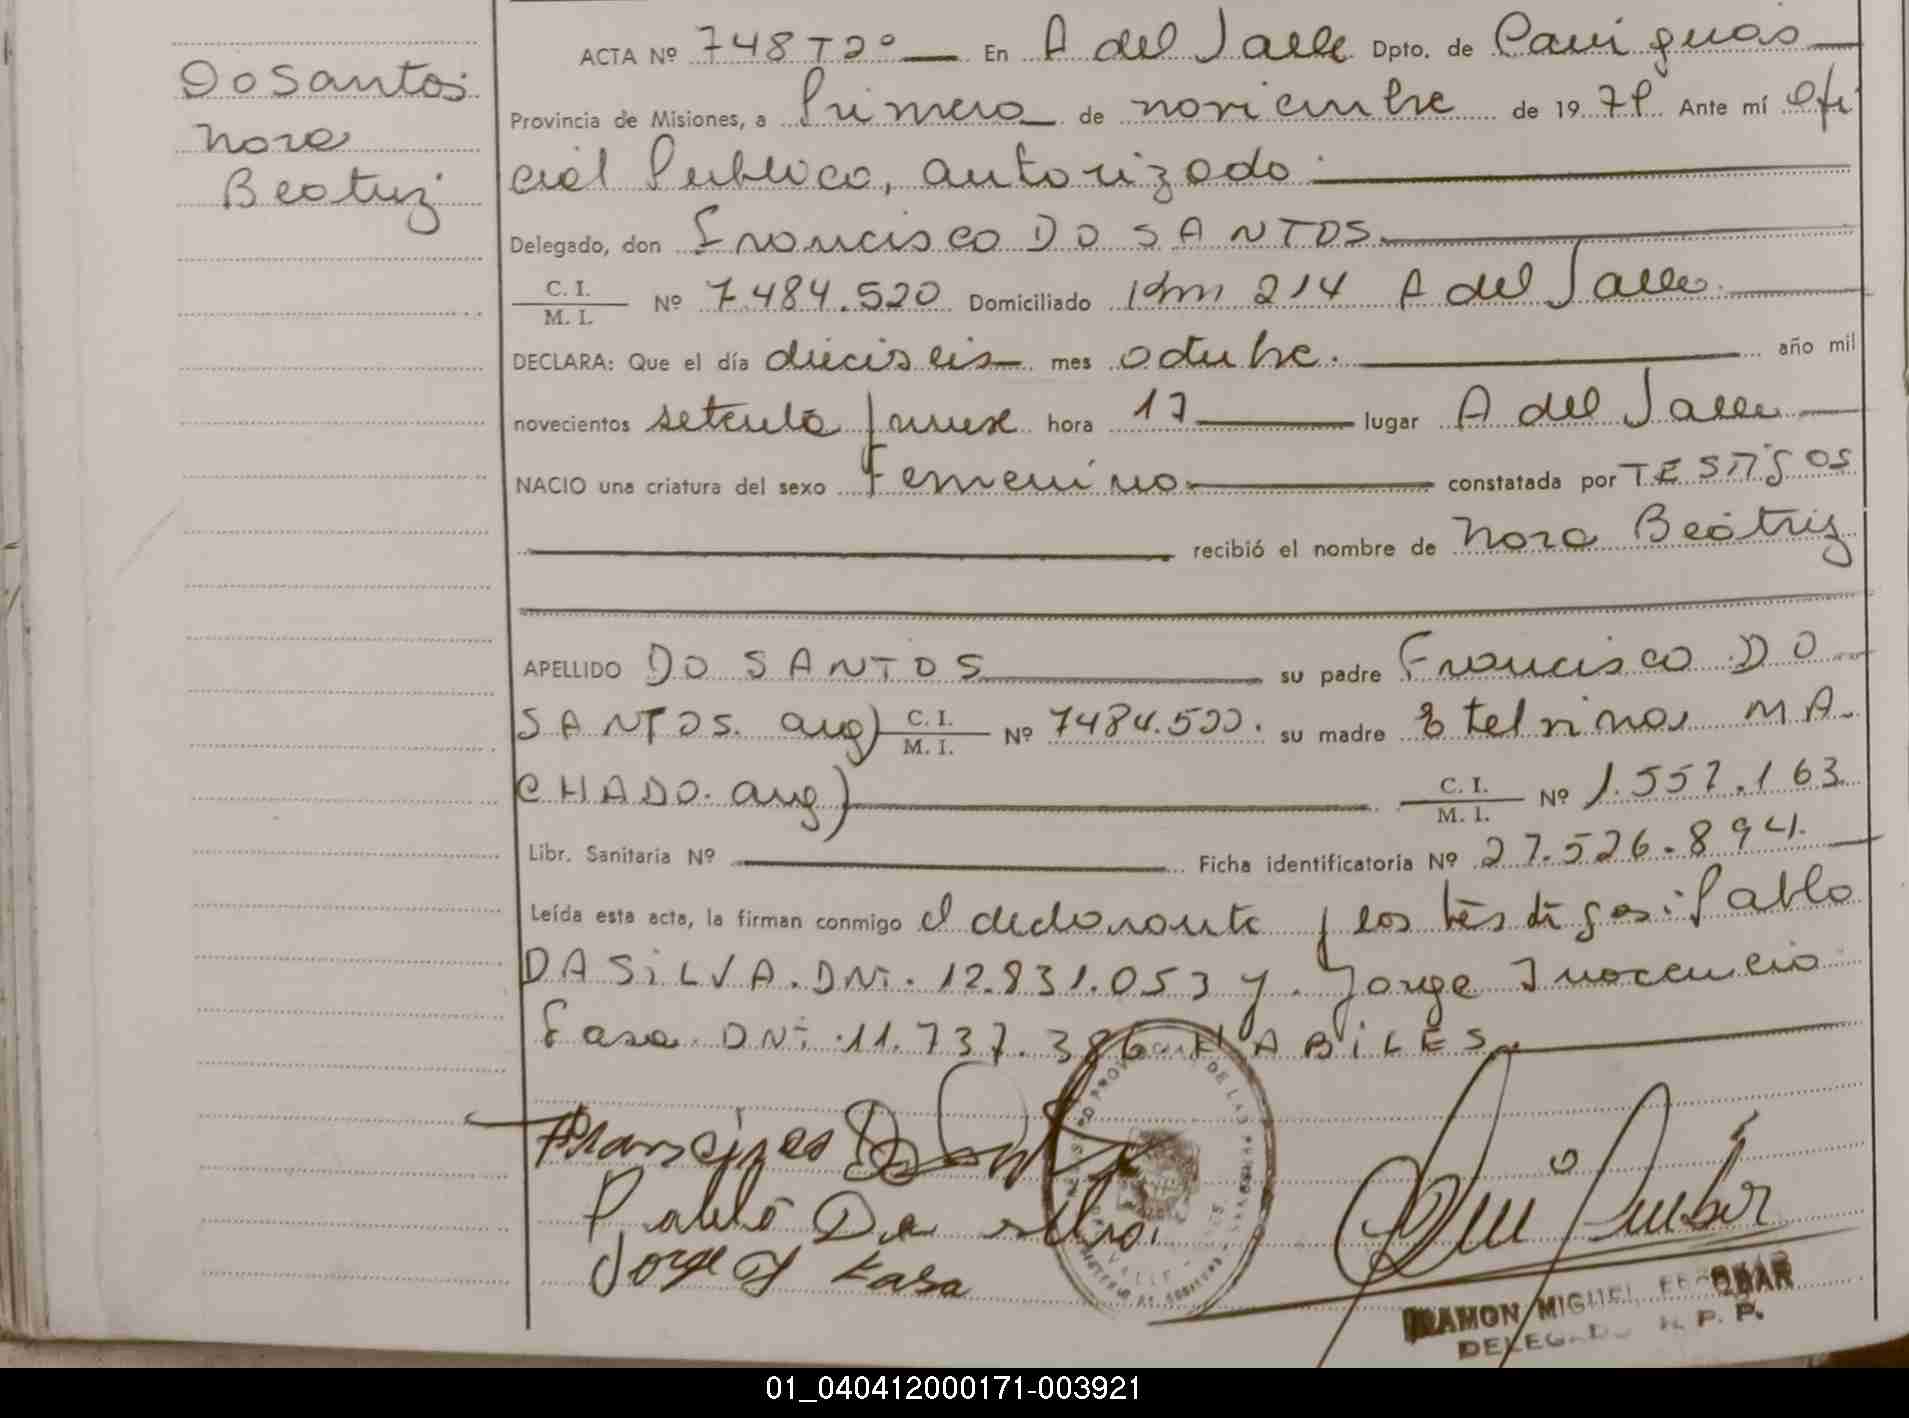 Do Santos
Nora
Beatriz
ACTA Nº 748 T 2º En A del Valle Dpto. de Cainguas
Provincia de Misiones, a Primero de noviembre de 1979 Ante mí Ofi
cial Publico, autorizado
Delegado, don Francisco DO SANTOS
C. I.
M. I. Nº 7.484.520 Domiciliado Km 214 A del Valle
DECLARA: Que el día dieciseis mes octubre. año mil
novecientos setenta y nueve hora 17 lugar A del Valle
NACIO una criatura del sexo Femenino constatada por TESTIGOS
recibió el nombre de Nora Beatriz
APELLIDO DO SANTOS su padre Francisco DO
SANTOS. arg) C. I.
M. I. Nº 7484.520. su madre Etelvina MA
CHADO. arg) C. I.
M. I. Nº 1.557.163
Libr. Sanitaria Nº Ficha identificatoria Nº 27.526.894.
Leída esta acta, la firman conmigo el declarante y los testigos: Pablo
DA SILVA. DNi. 12.831.053 y. Jorge Inocencio
Kasa DNi. 11.737.386 HABiLES
Pablo Da silva
Jorge I Kasa
RAMON MIGUEL
DELEGADO R. P. P.
01_040412000171-003921